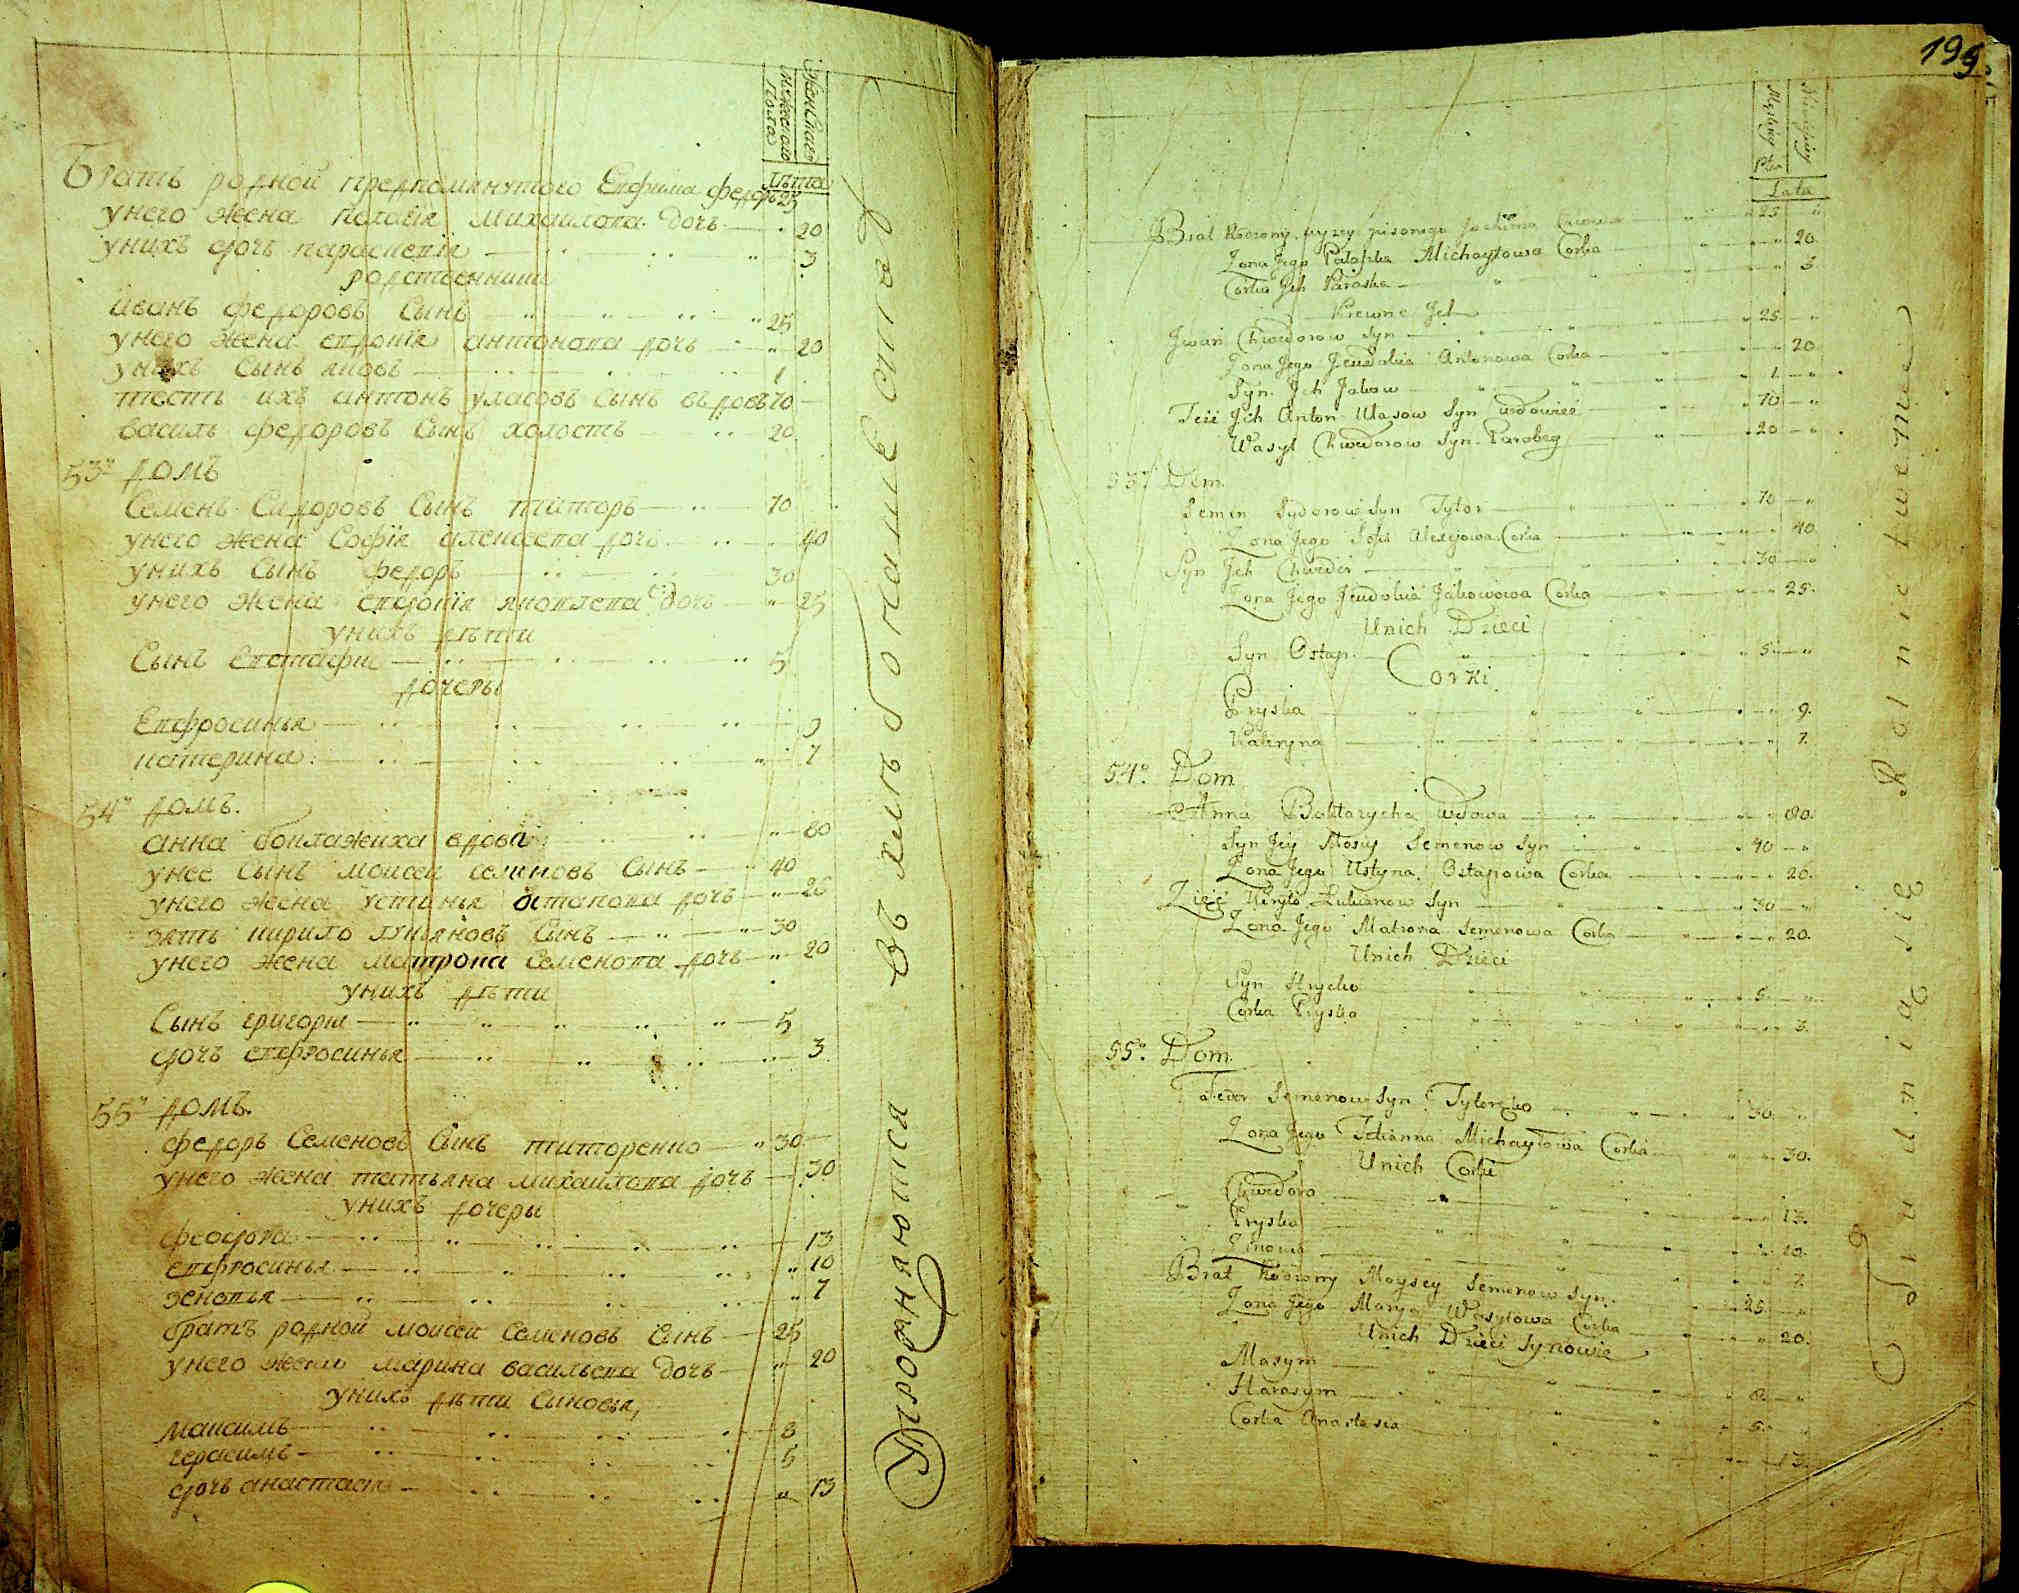 Женска
мужеска
пола
лѣта
Братъ родной предпомянутого Евфима федоръ 25
унего жена палагія михаилова дочь 20
унихъ дочь параскевія 3
родственники
иванъ федоровъ сынъ 25
унего жена евдокія антонова дочь 20
унихъ сынъ яковъ 1
тесть ихъ антонъ уласовъ сынъ вдовъ 70
василь федоровъ сынъ холостъ 20
53й домъ
Семенъ Сидоровъ сынъ титоръ 70
унего жена Софія алексеева дочь 40
унихъ сынъ федоръ 30
унего жена евдокія яковлева дочь 25
унихъ дѣти
Сынъ Евстафи 5
дочеры
Евфросинья 9
катерина 7
54й домъ.
анна боклажиха вдова 80
унее сынъ моисей семеновъ сынъ 40
унего жена устинья остапова дочь 26
зять кирило лукьяновъ сынъ 30
унего жена матрона семенова дочь 20
унихъ дѣти
Сынъ григори 5
дочь евфросинья 3
55й домъ.
федоръ Семеновъ сынъ титоренко 30
унего жена татьяна михаилова дочь 30
унихъ дочеры
феодора 13
евфросинья 10
зеновья 7
братъ родной моисей семеновъ сынъ 25
унего жена марина васильева дочь 20
унихъ дѣти сыновья,
максимъ 8
герасимъ 5
дочь анастасия 13
Въ хлѣбопашестве
упражняются
199
Męskiey
Płci
Lata
Brat Rodzony wyzey pisanego Jachima 25
Zona Jego Palahia Michayłowa Corka 20
Corka Jch Paraska 3
Krewne Jch
Jwan Chwedorow Syn 25
Zona Jego Jewdokia Antonowa Corka 20
Syn Jch Jakow 1
Teść Jch Anton Ułasow Syn wdowiec 70
Wasyl Chwedorow Syn Parobeg 20
53o Dom
Semen Sydorow Syn Tytor 70
Zona Jego Sofia Alexijowa Corka 40
Syn Jch Chwedir 30
Zona Jego Jewdokia Jakowowa Corka 25
Unich Dzieci
Syn Ostap 5
Corki
Pryska 9
Kateryna 7
54o Dom
Anna Bokłazycha Wdowa 80
Syn Jey Mosiy Semenow Syn 40
Zona Jego Ustyna Ostapowa Corka 26
Zięć Kiryło Lukianow Syn 30
Zona Jego Matrona Semenowa Corka 20
Unich Dzieci
Syn Hrycko 5
Corka Pryska 3
55o Dom
Fedor Semenow Syn Tytorenko 30
Zona Jego Tatianna Michayłowa Corka 30
Unich Corki
Chwedora 13
Pryska 10
Zinowia 7
Brat Rodzony Moysey Semenow Syn 25
Zona Jego Marya Wasylowa Corka 20
Unich Dzieci Synowie
Maxym 8
Harasym 5
Corka Anastasia 13
Trudnią się Rolnictwem